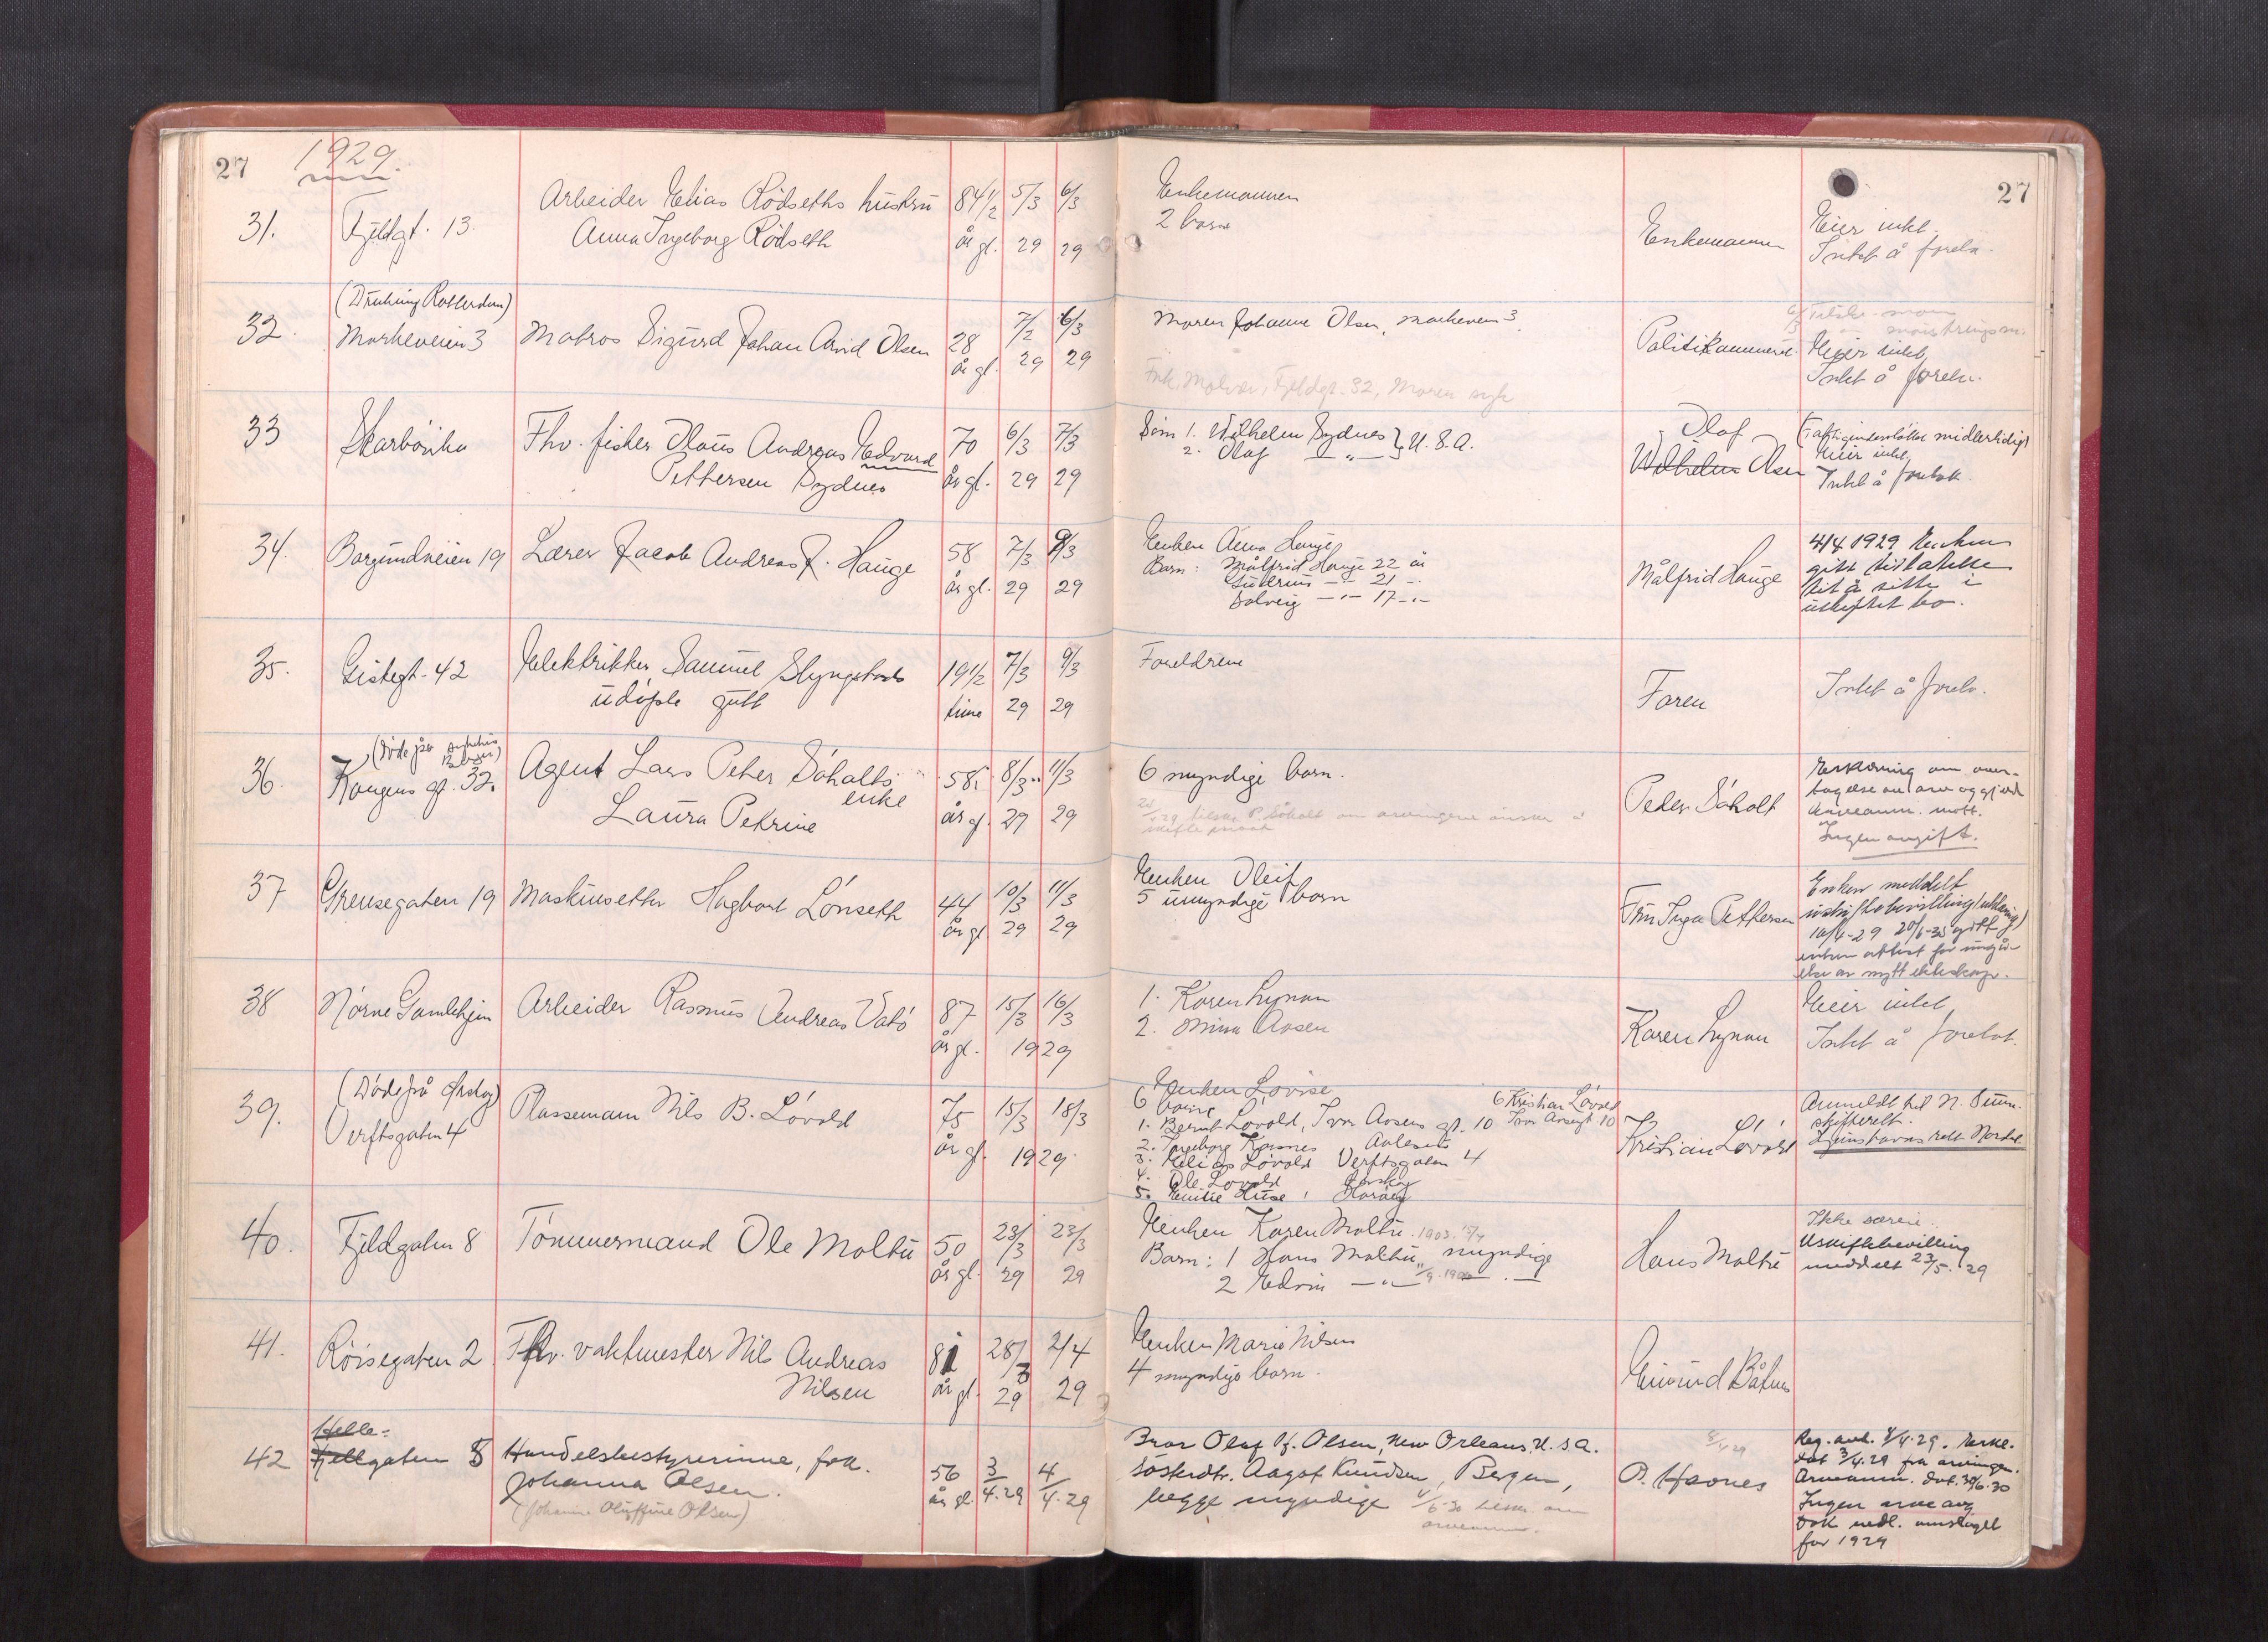 27
1929.
27
31.
Fjeldgt. 13.
Arbeider Elias Rödseths hustru
Anna Ingeborg Rödseth
84 1/2
år gl.
5/3
29
6/3
29
Enkemannen
2 barn
Enkemannen
Eier intet.
Intet å foreta.
32.
(Drukning Rotterdam)
Markeveien 3
Matros Sigurd Johan Arvid Olsen
28
år gl.
7/2
29
6/3
29
Moren Johanne Olsen, Markeveien 3.
Fjeldgt. 32, Moren syk
Politikammeret.
Eier intet,
Intet å foreta.
33
Skarbövika
Fhv. fisker Olaus Andreas Edvard
Pettersen Sydnes
70
år gl.
6/3
29
7/3
29
Sönn 1. Wilhelm Sydnes } U.S.A.
2. Olaf — " —
Olaf
Wilhelm Olsen
midlertidig)
Eier intet.
Intet å foreta.
34.
Borgundveien 19
Lærer Jacob Andreas J. Hauge
58
år gl.
7/3
29
9/3
29
Enken Anna Hauge
Barn: Målfrid Hauge 22 år
— " — 21 — " —
Solveig — " — 17 — " —
Målfrid Hauge
4/4 1929 Enken
gitt tillatelse
til å sitte i
uskiftet bo.
35.
Gistegt. 42
Elektrikker Samuel Slyngstads
udöpte gutt
19 1/2
time
7/3
29
9/3
29
Foreldrene
Faren
Intet å foreta.
36.
(Döde på sykehus Bergen)
Kongens gt. 32.
Agent Lars Peter Söholts
enke
Laura Petrine
58
år gl.
8/3
29
11/3
29
6 myndige barn.
P. Söholt om arvingene önsker å
skifte privat
Peder Söholt
Erklæring om over-
tagelse av arv og gjeld
Arveanm. mott.
Ingen avgift.
37
Grensegaten 19
Maskinsetter Hagbart Lönseth
44
år gl
10/3
29
11/3
29
Enken Oleif
5 umyndige barn
Fru Inga Pettersen
Enken meddelt
uskiftebevilling
10/4-29 20/6-35 gitt
enken attest for inngå-
else av nytt ekteskap.
38
Nörve Gamlehjem
Arbeider Rasmus Andreas Vatö
87
år gl.
15/3
16/3
1929
1. Karen Lynau
2. Mina Aasen
Karen Lynau
Eier intet
Intet å foreta.
39.
(Döde på Ørskog)
Verftsgaten 4
Plassemann Nils B. Lövold
75
år gl.
15/3
18/3
1929.
Enken Lovise
6 barn
6 Kristian Lövold
1. Bernt Lövold, Ivar Aasens gt. 10
Ivar Aasensgt 10
2. Ingeborg Aalesund
3. Elias Lövold Verftsgaten 4
4. Ole Lövold Ørskog
5. Emilie Huse,
Kristian Lövold
Anmeldt til N. Sunn.
skifterett.
40.
Fjeldgaten 8
Tömmermand Ole Moltu
50
år gl.
23/3
29
23/3
29
Enken Karen Moltu.
Barn: 1 Hans Moltu, myndige
2 Edvin — " —
Hans Moltu
Ikke særeie.
Uskiftebevilling
meddelt 23/5. 29
41.
Röisegaten 2
Fhv. vaktmester Nils Andreas
Nilsen
81
år gl.
28/3
29
2/4
29
Enken Marie Nilsen
4 myndige barn.
42
Helle-
Fjellgaten 5
Handelsbestyrerinne, frk.
Johanna Olsen.
(Johanna Oluffine Olsen)
56
år gl.
3/4.29
4/4.29
Bror Olaf Pf. Olsen, New Orleans. U.S.A.
Sösterdtr. Aagot Knudsen, Bergen,
begge myndige
8/4 29
P. Havnes
Reg. anb. 8/4.29. Erkl.
dat 3/4.29 fra arvingen.
Arveanm. dat. 30/6.30
Ingen arveavg
Dok nedl. omslaget
for 1929